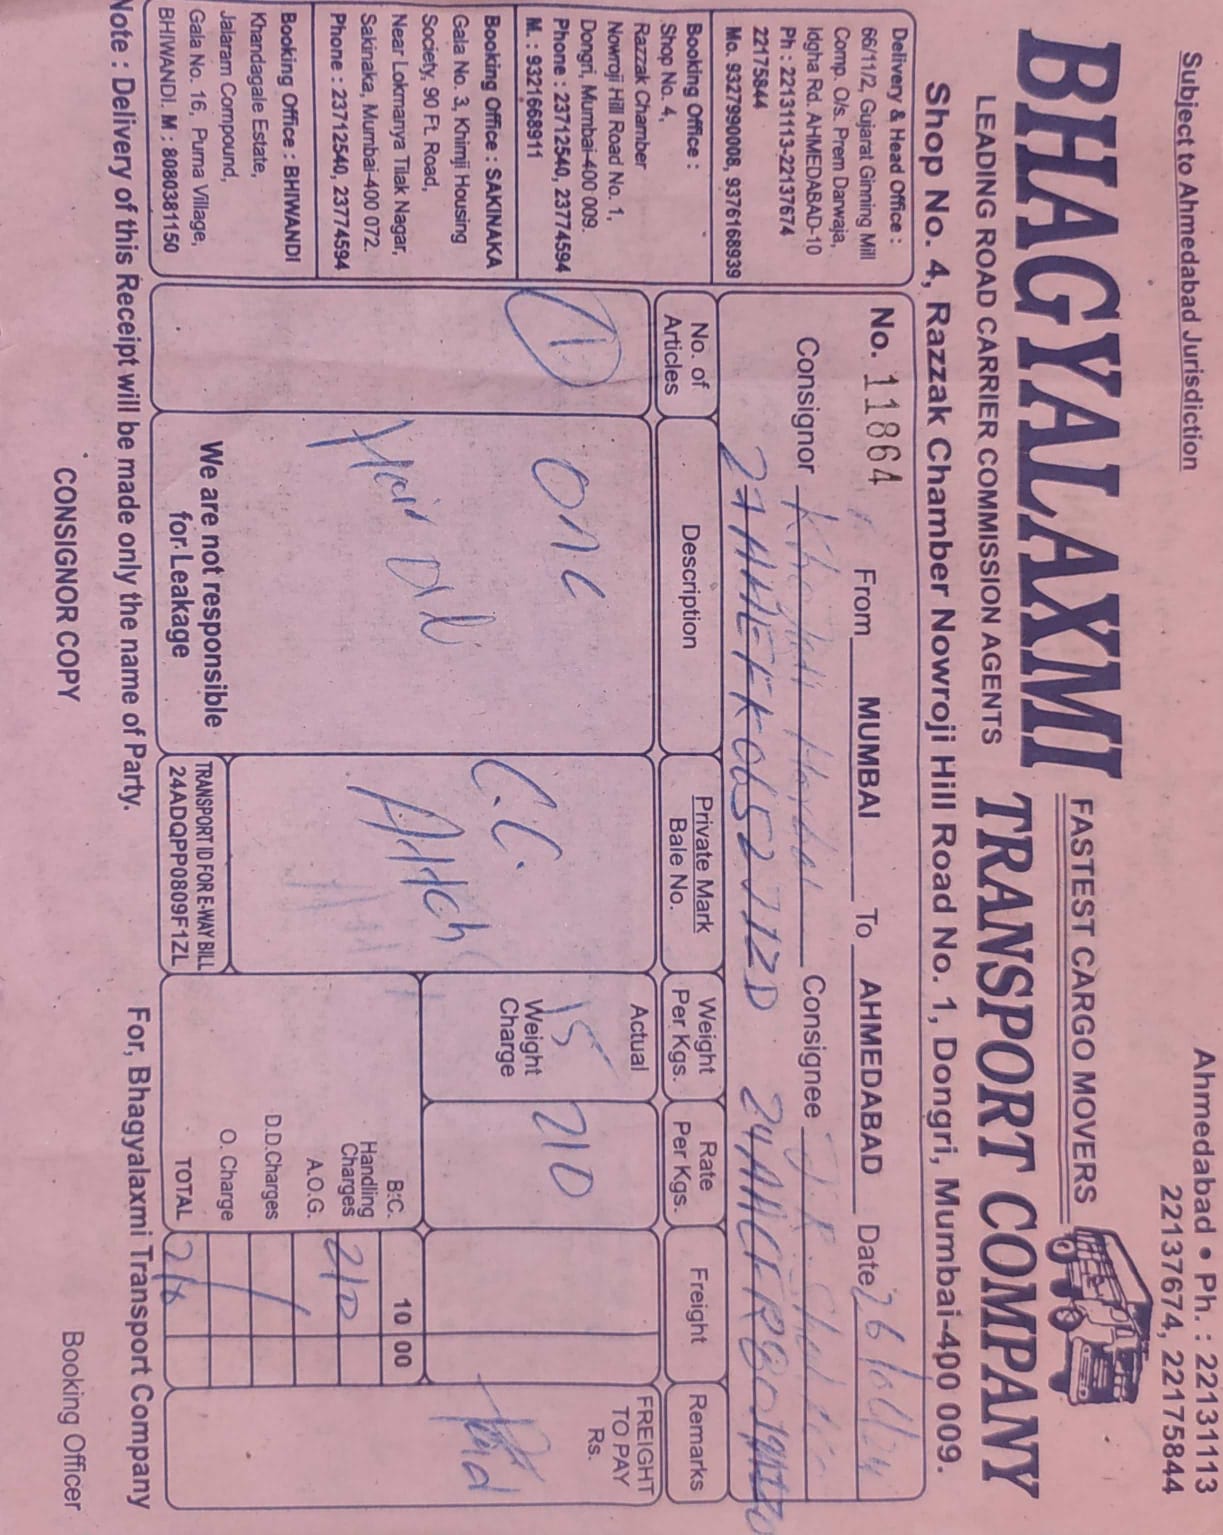 Subject to Ahmedabad Jurisdiction
Ahmedabad • Ph. : 22131113
22137674, 22175844
BHAGYALAXMI
FASTEST CARGO MOVERS
TRANSPORT COMPANY
LEADING ROAD CARRIER COMMISSION AGENTS
Shop No. 4, Razzak Chamber Nowroji Hill Road No. 1, Dongri, Mumbai-400 009.
Delivery & Head Office :
66/11/2, Gujarat Ginning Mill
Comp. O/s. Prem Darwaja,
Idgha Rd. AHMEDABAD-10
Ph : 22131113-22137674
22175844
Mo. 9327990008, 9376168939
Booking Office :
Shop No. 4,
Razzak Chamber
Nowroji Hill Road No. 1,
Dongri, Mumbai-400 009.
Phone : 23712540, 23774594
M. : 9321668911
Booking Office : SAKINAKA
Gala No. 3, Khimji Housing
Society, 90 Ft. Road,
Near Lokmanya Tilak Nagar,
Sakinaka, Mumbai-400 072.
Phone : 23712540, 23774594
Booking Office : BHIWANDI
Khandagale Estate,
Jalaram Compound,
Gala No. 16, Purna Village,
BHIWANDI. M : 8080381150
No. 11864 From MUMBAI To AHMEDABAD Date
Consignor Consignee
No. of Articles
Description
Private Mark
Bale No.
Weight Per Kgs.
Rate Per Kgs.
Freight
Remarks
1
One
Hair Oil
C.C.
Attch
Actual
15
Weight Charge
210
FREIGHT TO PAY Rs.
Paid
B.C. 10 00
Handling Charges 210
A.O.G.
D.D.Charges
O. Charge
TOTAL
We are not responsible
for Leakage
TRANSPORT ID FOR E-WAY BILL
24ADQPP0809F1ZL
Note : Delivery of this Receipt will be made only the name of Party.
For, Bhagyalaxmi Transport Company
CONSIGNOR COPY
Booking Officer